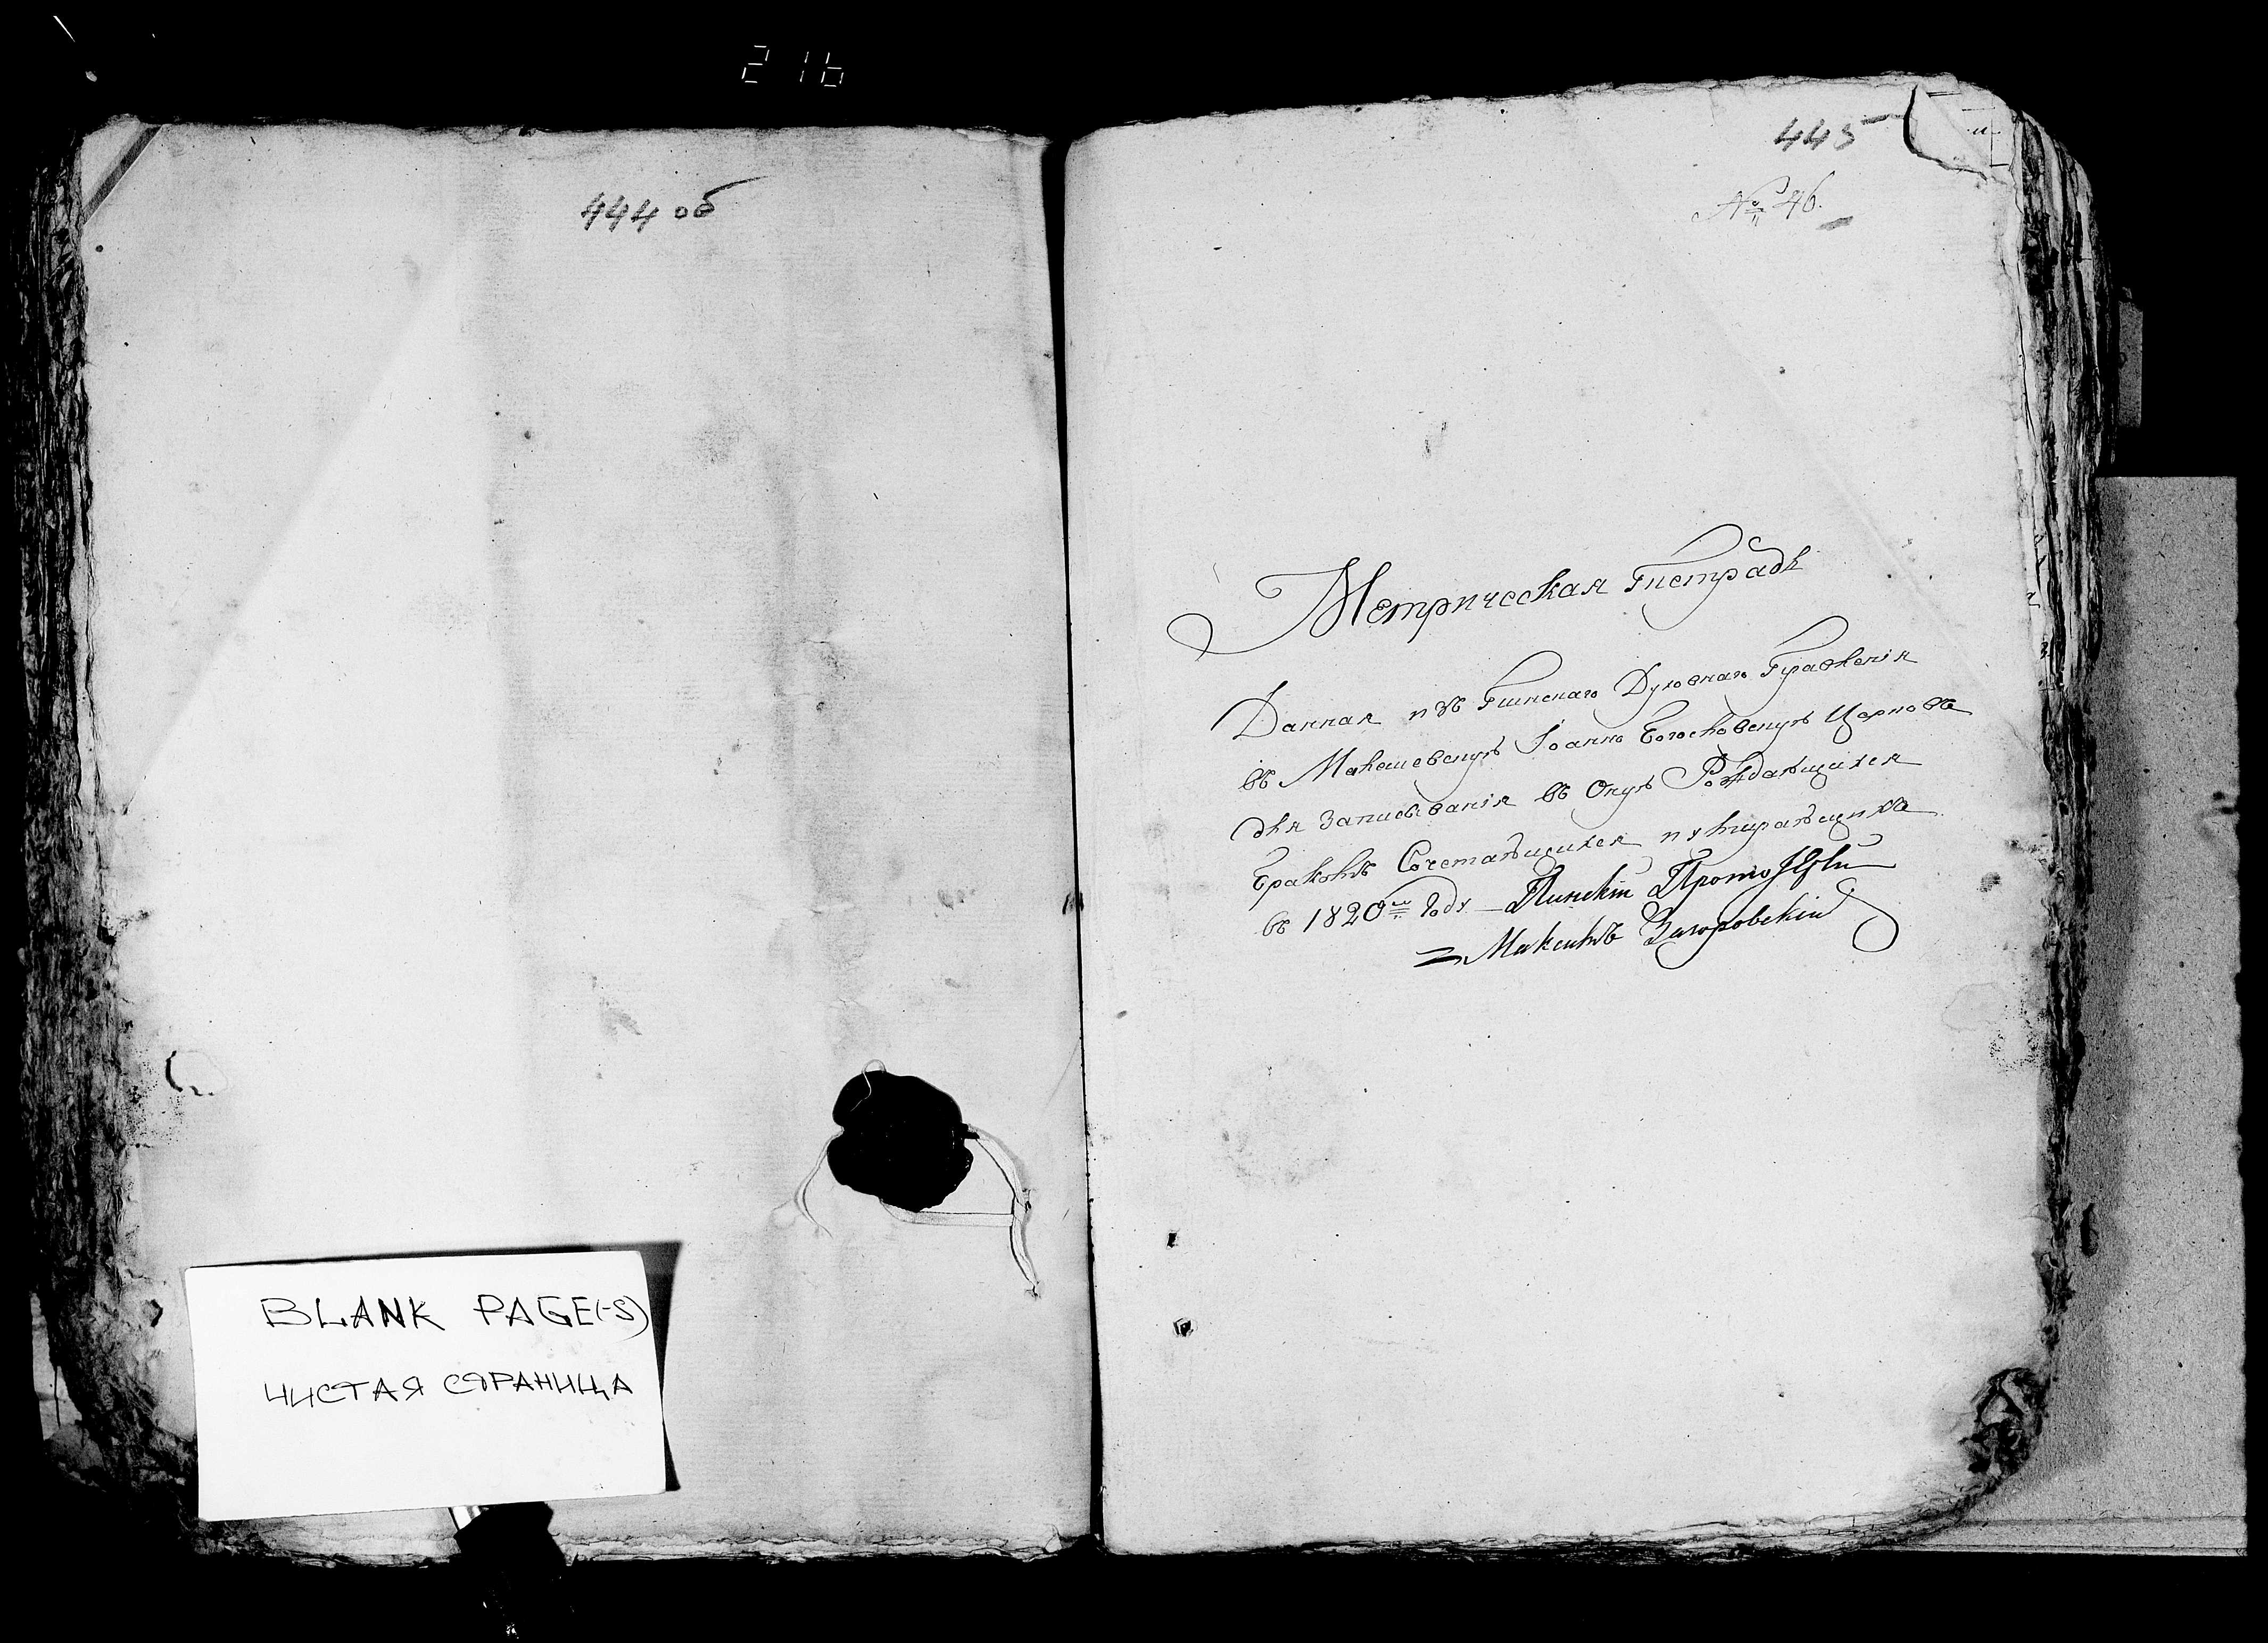 216
444 об
BLANK PAGE(-S)
ЧИСТАЯ СТРАНИЦА
445
№ 46.
Метрическая тетрадь
Данная изъ Пинскаго Духовнаго Правленія
въ Іоанно Богословскую Церковь
для Записыванія въ Оную Рождающихся
Бракомъ Сочетающихся и умирающихъ
въ 1820м Году Пинскій Протоіерей
Максимъ Загоровскій